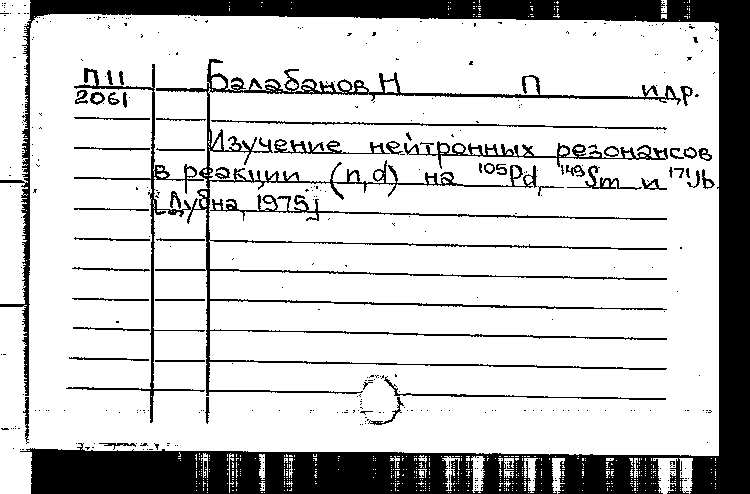 П11
2061
Балабанов, Н П и др.
Изучение нейтронных резонансов
в реакции (n,d) на ¹⁰⁵Pd, ¹⁴⁹Sm и ¹⁷¹Yb.
[Дубна, 1975]